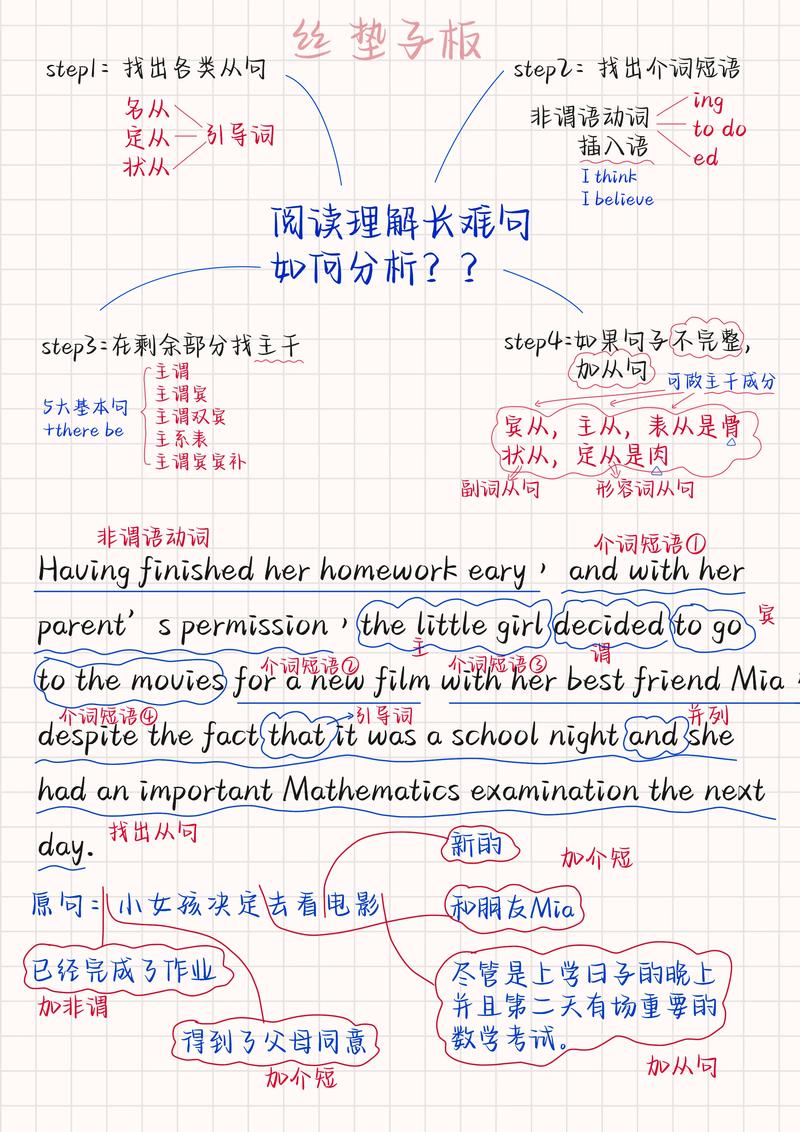 丝垫子板
step1：找出各类从句
名从
定从
状从
引导词
step2：找出介词短语
非谓语动词
插入语
ing
to do
ed
I think
I believe
阅读理解长难句
如何分析？？
step3：在剩余部分找主干
5大基本句
+there be
主谓
主谓宾
主谓双宾
主系表
主谓宾宾补
step4：如果句子不完整，
加从句
可做主干成分
宾从，主从，表从是骨
状从，定从是肉
副词从句
形容词从句
非谓语动词
介词短语①
Having finished her homework eary，and with her
parent's permission，the little girl decided to go
宾
主
谓
介词短语②
介词短语③
to the movies for a new film with her best friend Mia，
介词短语④
引导词
并列
despite the fact that it was a school night and she
had an important Mathematics examination the next
day.
找出从句
新的
加介短
原句：小女孩决定去看电影
和朋友Mia
已经完成了作业
加非谓
得到了父母同意
加介短
尽管是上学日子的晚上
并且第二天有场重要的
数学考试。
加从句